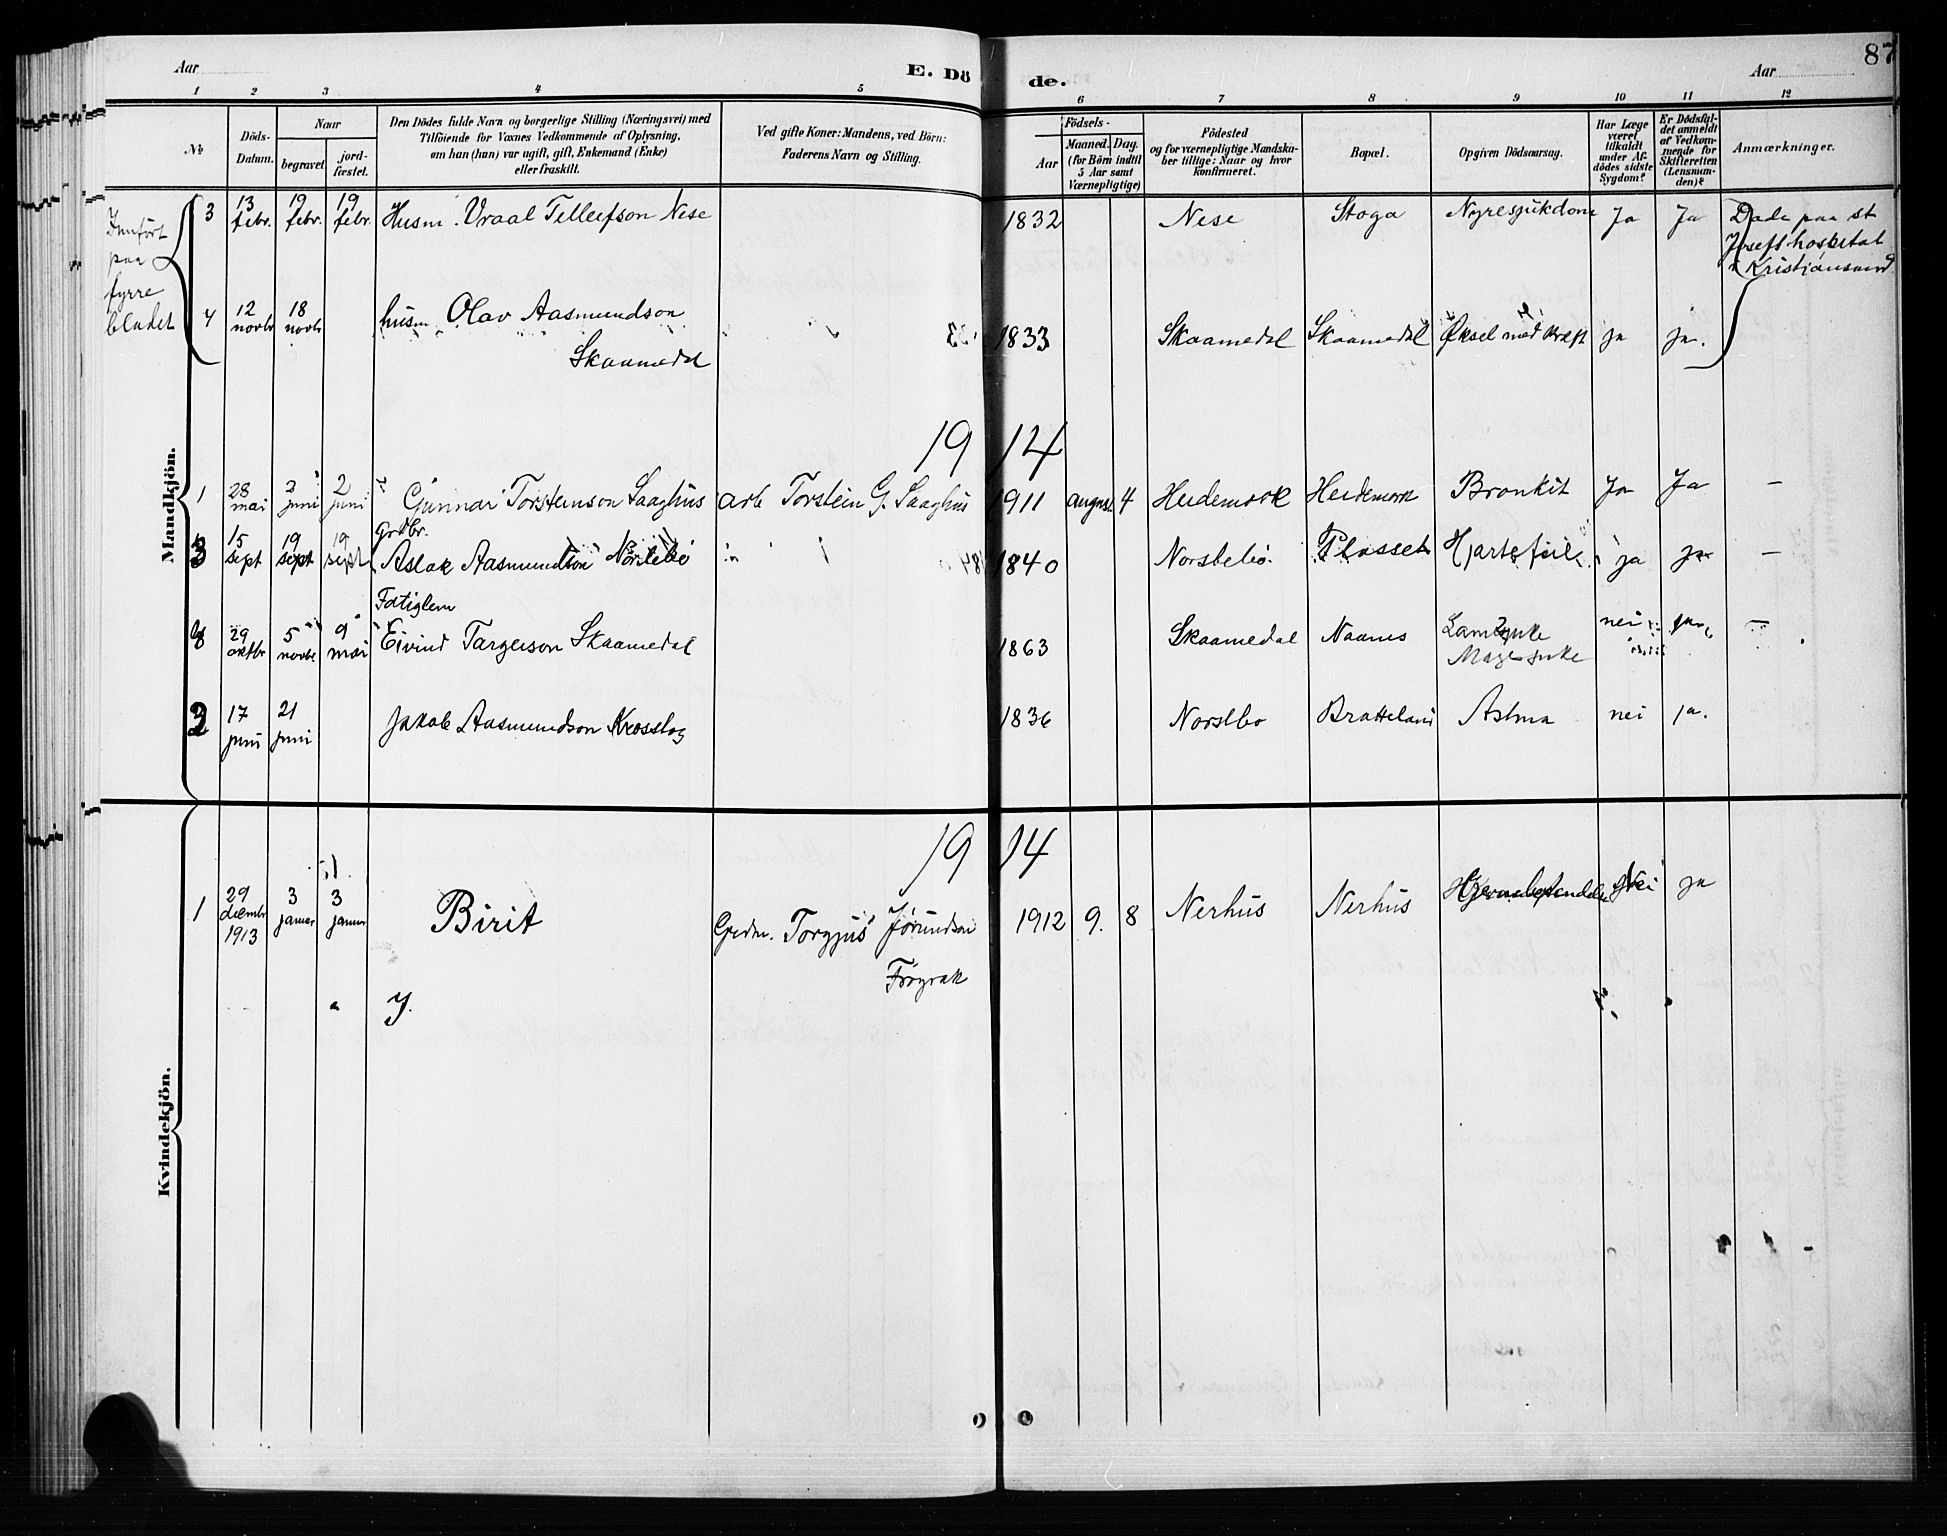 Aar
E. Dö
de.
Aar
87
1 2 3 4 5 6 7 8 9 10 11 12
No
Döds-
Datum.
Naar
begravet.
jord-
fæstet.
Den Dödes fulde Navn og borgerlige Stilling (Næringsvei) med
Tilföiende for Voxnes Vedkommende af Oplysning,
om han (hun) var ugift, gift, Enkemand (Enke)
eller fraskilt.
Ved gifte Koner: Mandens, ved Börn:
Faderens Navn og Stilling.
Födsels-
Aar
Maaned. Dag.
(for Börn indtil
5 Aar samt
Værnepligtige)
Födested
og for værnepligtige Mandska-
ber tillige: Naar og hvor
konfirmeret.
Bopæl.
Opgiven Dödsaarsag.
Har Læge
været
tilkaldt
under Af-
dödes sidste
Sygdom?
Er Dödsfal-
det anmeldt
af Vedkom-
mende for
Skifteretten
(Lensman-
den)?
Anmærkninger.
Innført
paa
fyrre
bladet
Mandkjön.
3 13 febr. 19 febr. 19 febr. Husm. Vraal Tellefson Nese 1832 Nese Stoga Nyresjukdom Ja Ja Døde paa st
Josefs hospital
i Kristiansand
4 12 novbr 18 novbr husm Olav Aasmundson 1833 Skaamedal Skaamedal Øksel mod kræft ja ja.
Skaamedal
19 14
1 28 mai 2 juni 2 juni Gunnar Torsteinson Saaghus arb Torstein G. Saaghus 1911 august 4 Heidemork Heidemork Bronkit Ja Ja —
Grdbr.
3 15 sept 19 sept 19 sept Aslak Aasmundson Norstebø 1840 Norstebø Flosset Hjartefeil ja ja —
Fatiglem
4 29 oktbr 5 novbr 9 mai Eivind Targeirson Skaamedal 1863 Skaamedal Naanes nei ja —
Magesjuke
2 17 juni 21 juni Jakob Aasmundson Krosslog 1836 Norstbø Bratteland Astma nei ja.
Kvindekjön.
19 14
1 29 decembr 1913 3 januar 3 januar Birit Grdm. Torgjus Jørundson 1912 9. 8 Nerhus Nerhus Nei ja
Frøyrak